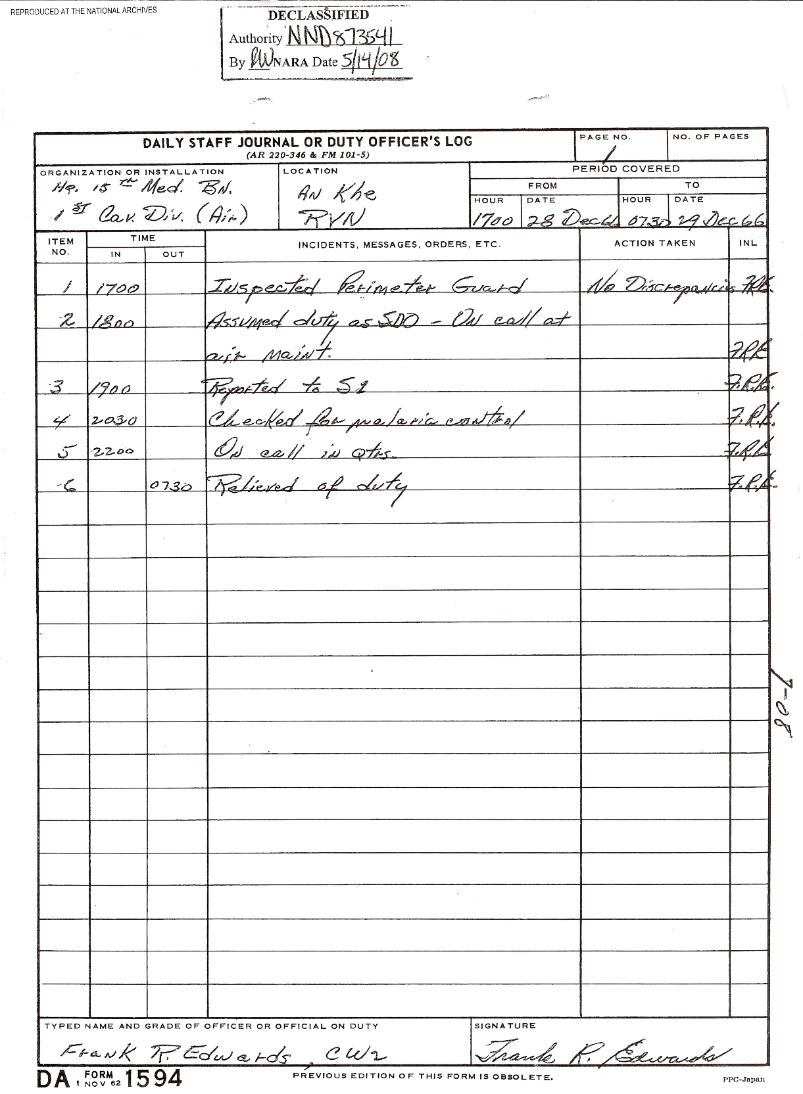 REPRODUCED AT THE NATIONAL ARCHIVES
DECLASSIFIED
Authority NND873541
By NARA Date 5/14/08
DAILY STAFF JOURNAL OR DUTY OFFICER'S LOG
(AR 220-346 & FM 101-5)
PAGE NO.
1
NO. OF PAGES
ORGANIZATION OR INSTALLATION
Hq. 15th Med. BN.
1st Cav. Div. (Air)
LOCATION
AN Khe
RVN
PERIOD COVERED
FROM TO
HOUR DATE HOUR DATE
1700 28 Dec 66 0730 29 Dec 66
ITEM NO. TIME IN OUT INCIDENTS, MESSAGES, ORDERS, ETC. ACTION TAKEN INL
1 1700 Inspected Perimeter Guard No Discrepancies FRE
2 1800 Assumed duty as SDO - On call at
air maint. FRE
3 1900 Reported to S1 F.R.E.
4 2030 Checked for malaria control F.R.E.
5 2200 On call in qtrs. F.R.E
6 0730 Relieved of duty F.R.E.
7-08
TYPED NAME AND GRADE OF OFFICER OR OFFICIAL ON DUTY
Frank R. Edwards, CW2
SIGNATURE
Frank R. Edwards
DA FORM 1 NOV 62 1594
PREVIOUS EDITION OF THIS FORM IS OBSOLETE.
PPC-Japan